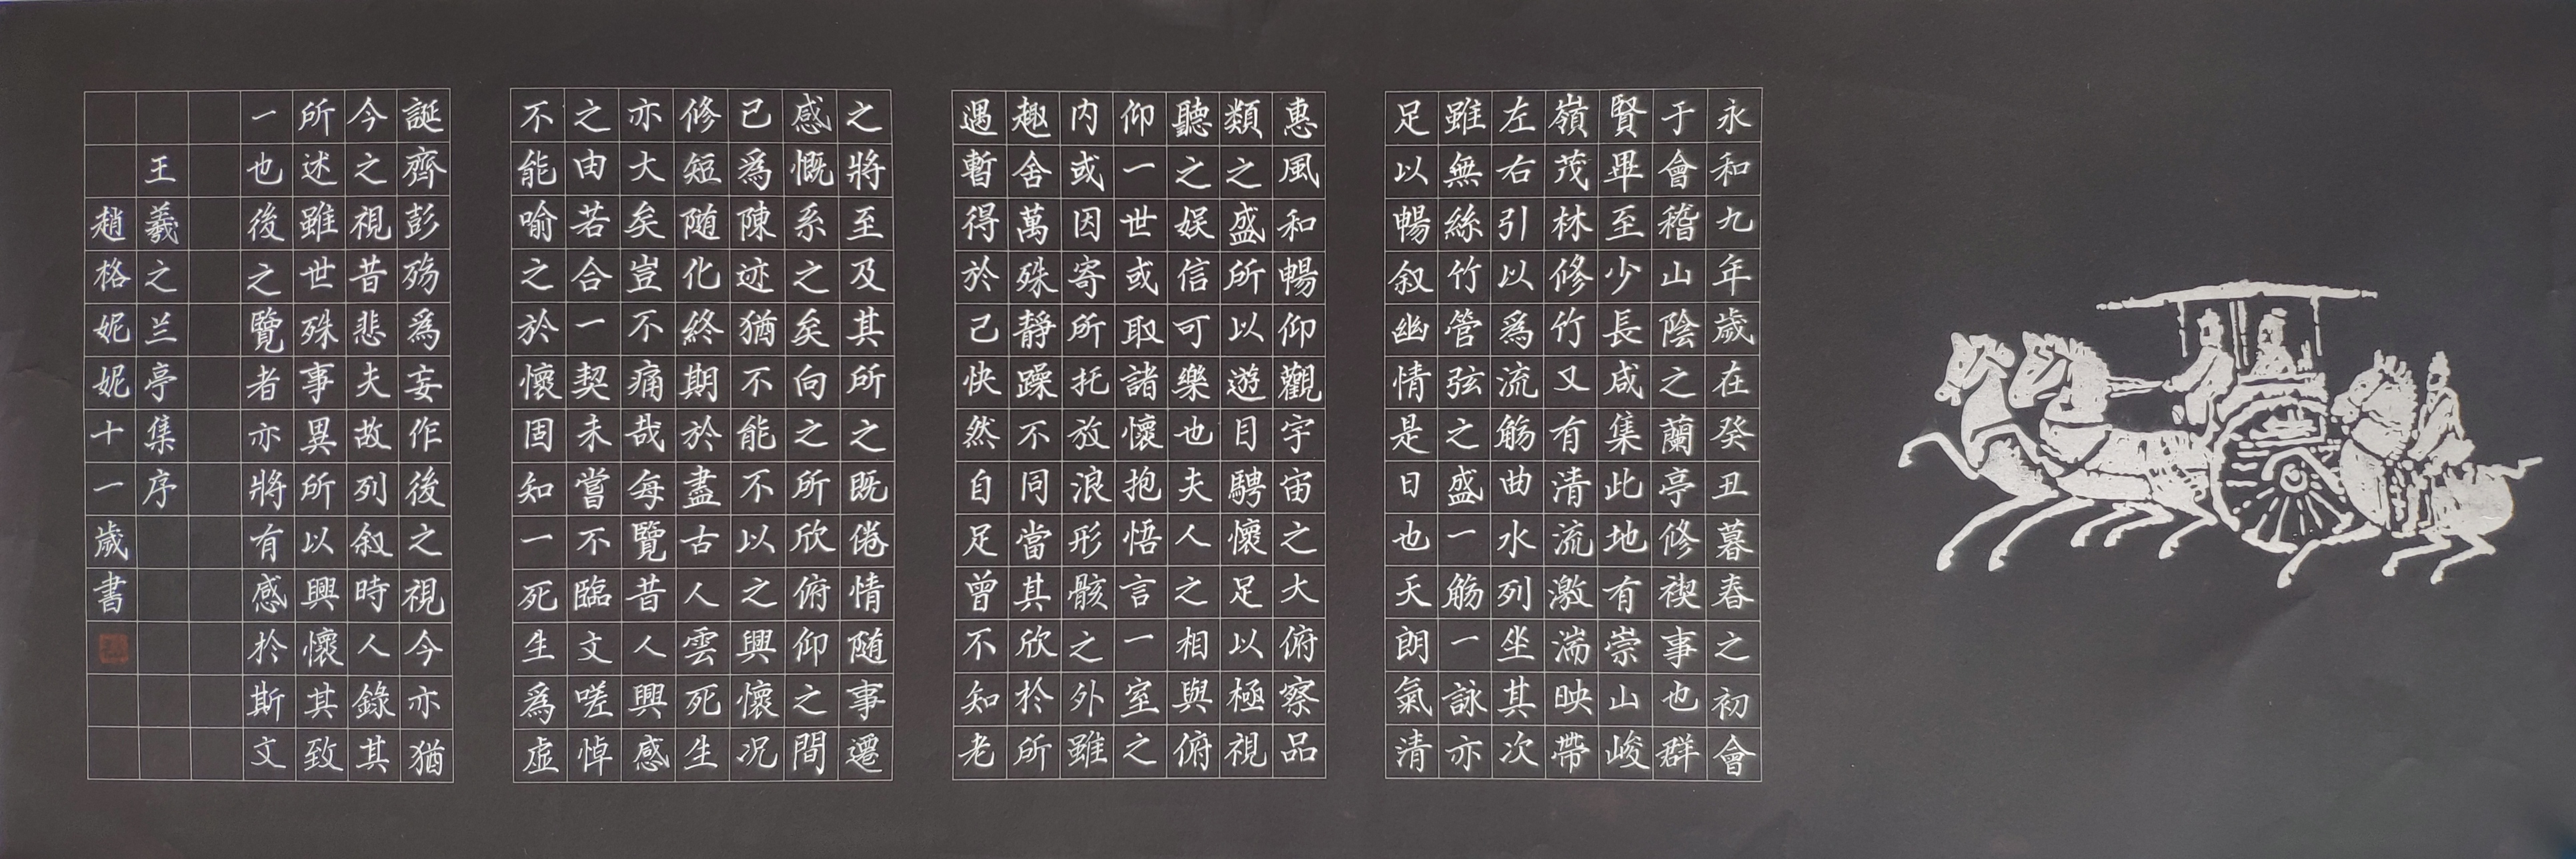 永和九年歲在癸丑暮春之初會
于會稽山陰之蘭亭修禊事也群
賢畢至少長咸集此地有崇山峻
嶺茂林修竹又有清流激湍映帶
左右引以爲流觴曲水列坐其次
雖無絲竹管弦之盛一觴一詠亦
足以暢叙幽情是日也天朗氣清
惠風和暢仰觀宇宙之大俯察品
類之盛所以遊目騁懷足以極視
聽之娱信可樂也夫人之相與俯
仰一世或取諸懷抱悟言一室之
内或因寄所托放浪形骸之外雖
趣舍萬殊靜躁不同當其欣於所
遇暫得於己快然自足曾不知老
之將至及其所之既倦情随事遷
感慨系之矣向之所欣俯仰之間
已爲陳迹猶不能不以之興懷况
修短随化終期於盡古人雲死生
亦大矣豈不痛哉每覽昔人興感
之由若合一契未嘗不臨文嗟悼
不能喻之於懷固知一死生爲虛
誕齊彭殤爲妄作後之視今亦猶
今之視昔悲夫故列叙時人錄其
所述雖世殊事異所以興懷其致
一也後之覽者亦將有感於斯文
王羲之兰亭集序
趙格妮妮十一歲書